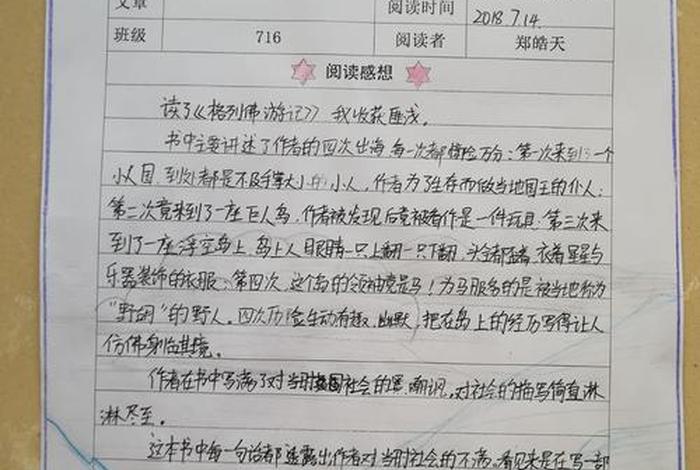 文章 阅读时间 2018.7.14
班级 716 阅读者 郑皓天
阅读感想
读了《格列佛游记》我收获匪浅。
书中主要讲述了作者的四次出海,每一次都惊险万分:第一次来到一个
小人国,到处都是不及手掌大小的小人,作者为了生存而做当地国王的仆人;
第二次竟来到了一座巨人岛,作者被发现后竟被看作是一件玩具;第三次来
到了一座浮空岛上,岛上人眼睛一只上翻一只下翻,头全都歪着,衣着星星与
乐器装饰的衣服;第四次,这个岛的领袖竟是马!为马服务的是被当地称为
“野胡”的野人。四次历险生动有趣,幽默,把在岛上的经历写得让人
仿佛身临其境。
作者在书中写满了对当时英国社会的嘲讽,对社会的描写简直淋
淋尽至。
这本书中每一句话都透露出作者对当时社会的不满,看见来是在写一部